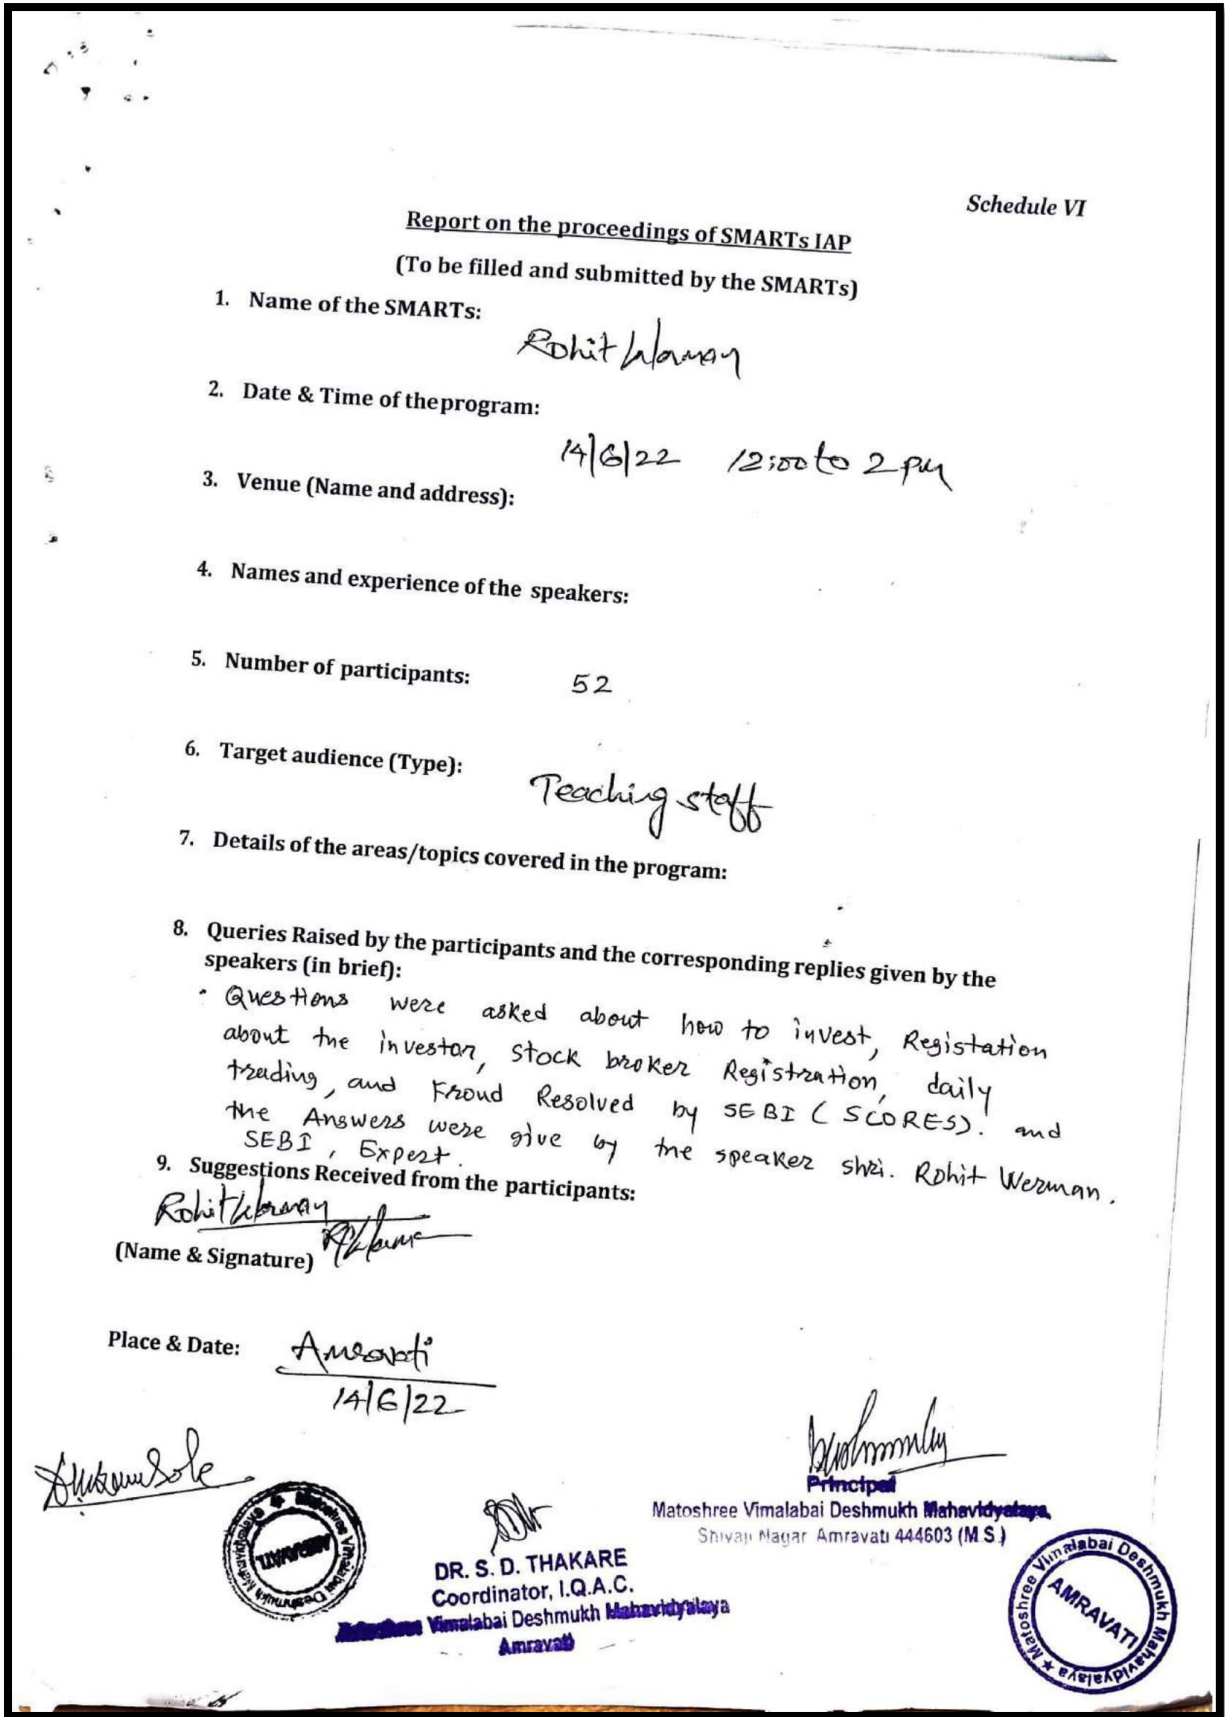 Schedule VI
Report on the proceedings of SMARTs IAP
(To be filled and submitted by the SMARTs)
1. Name of the SMARTs:
Rohit
2. Date & Time of theprogram:
14/6/22 12:00 to 2 pm
3. Venue (Name and address):
4. Names and experience of the speakers:
5. Number of participants: 52
6. Target audience (Type):
Teaching staff
7. Details of the areas/topics covered in the program:
8. Queries Raised by the participants and the corresponding replies given by the
speakers (in brief):
• Questions were asked about how to invest, Registation
about the investor, stock broker Registration, daily
trading, and Froud Resolved by SEBI (SCORES). and
the Answers were give by the speaker shri. Rohit Werman.
SEBI, Expert.
9. Suggestions Received from the participants:
Rohit
(Name & Signature)
Place & Date: Amravati
14/6/22
Principal
Matoshree Vimalabai Deshmukh Mahavidyalaya,
Shivaji Nagar Amravati 444603 (M.S.)
DR. S. D. THAKARE
Coordinator, I.Q.A.C.
Matoshree Vimalabai Deshmukh Mahavidyalaya
Amravati
Matoshree Vimalabai Deshmukh Mahavidyalaya
AMRAVATI
Matoshree Vimalabai Deshmukh Mahavidyalaya
AMRAVATI